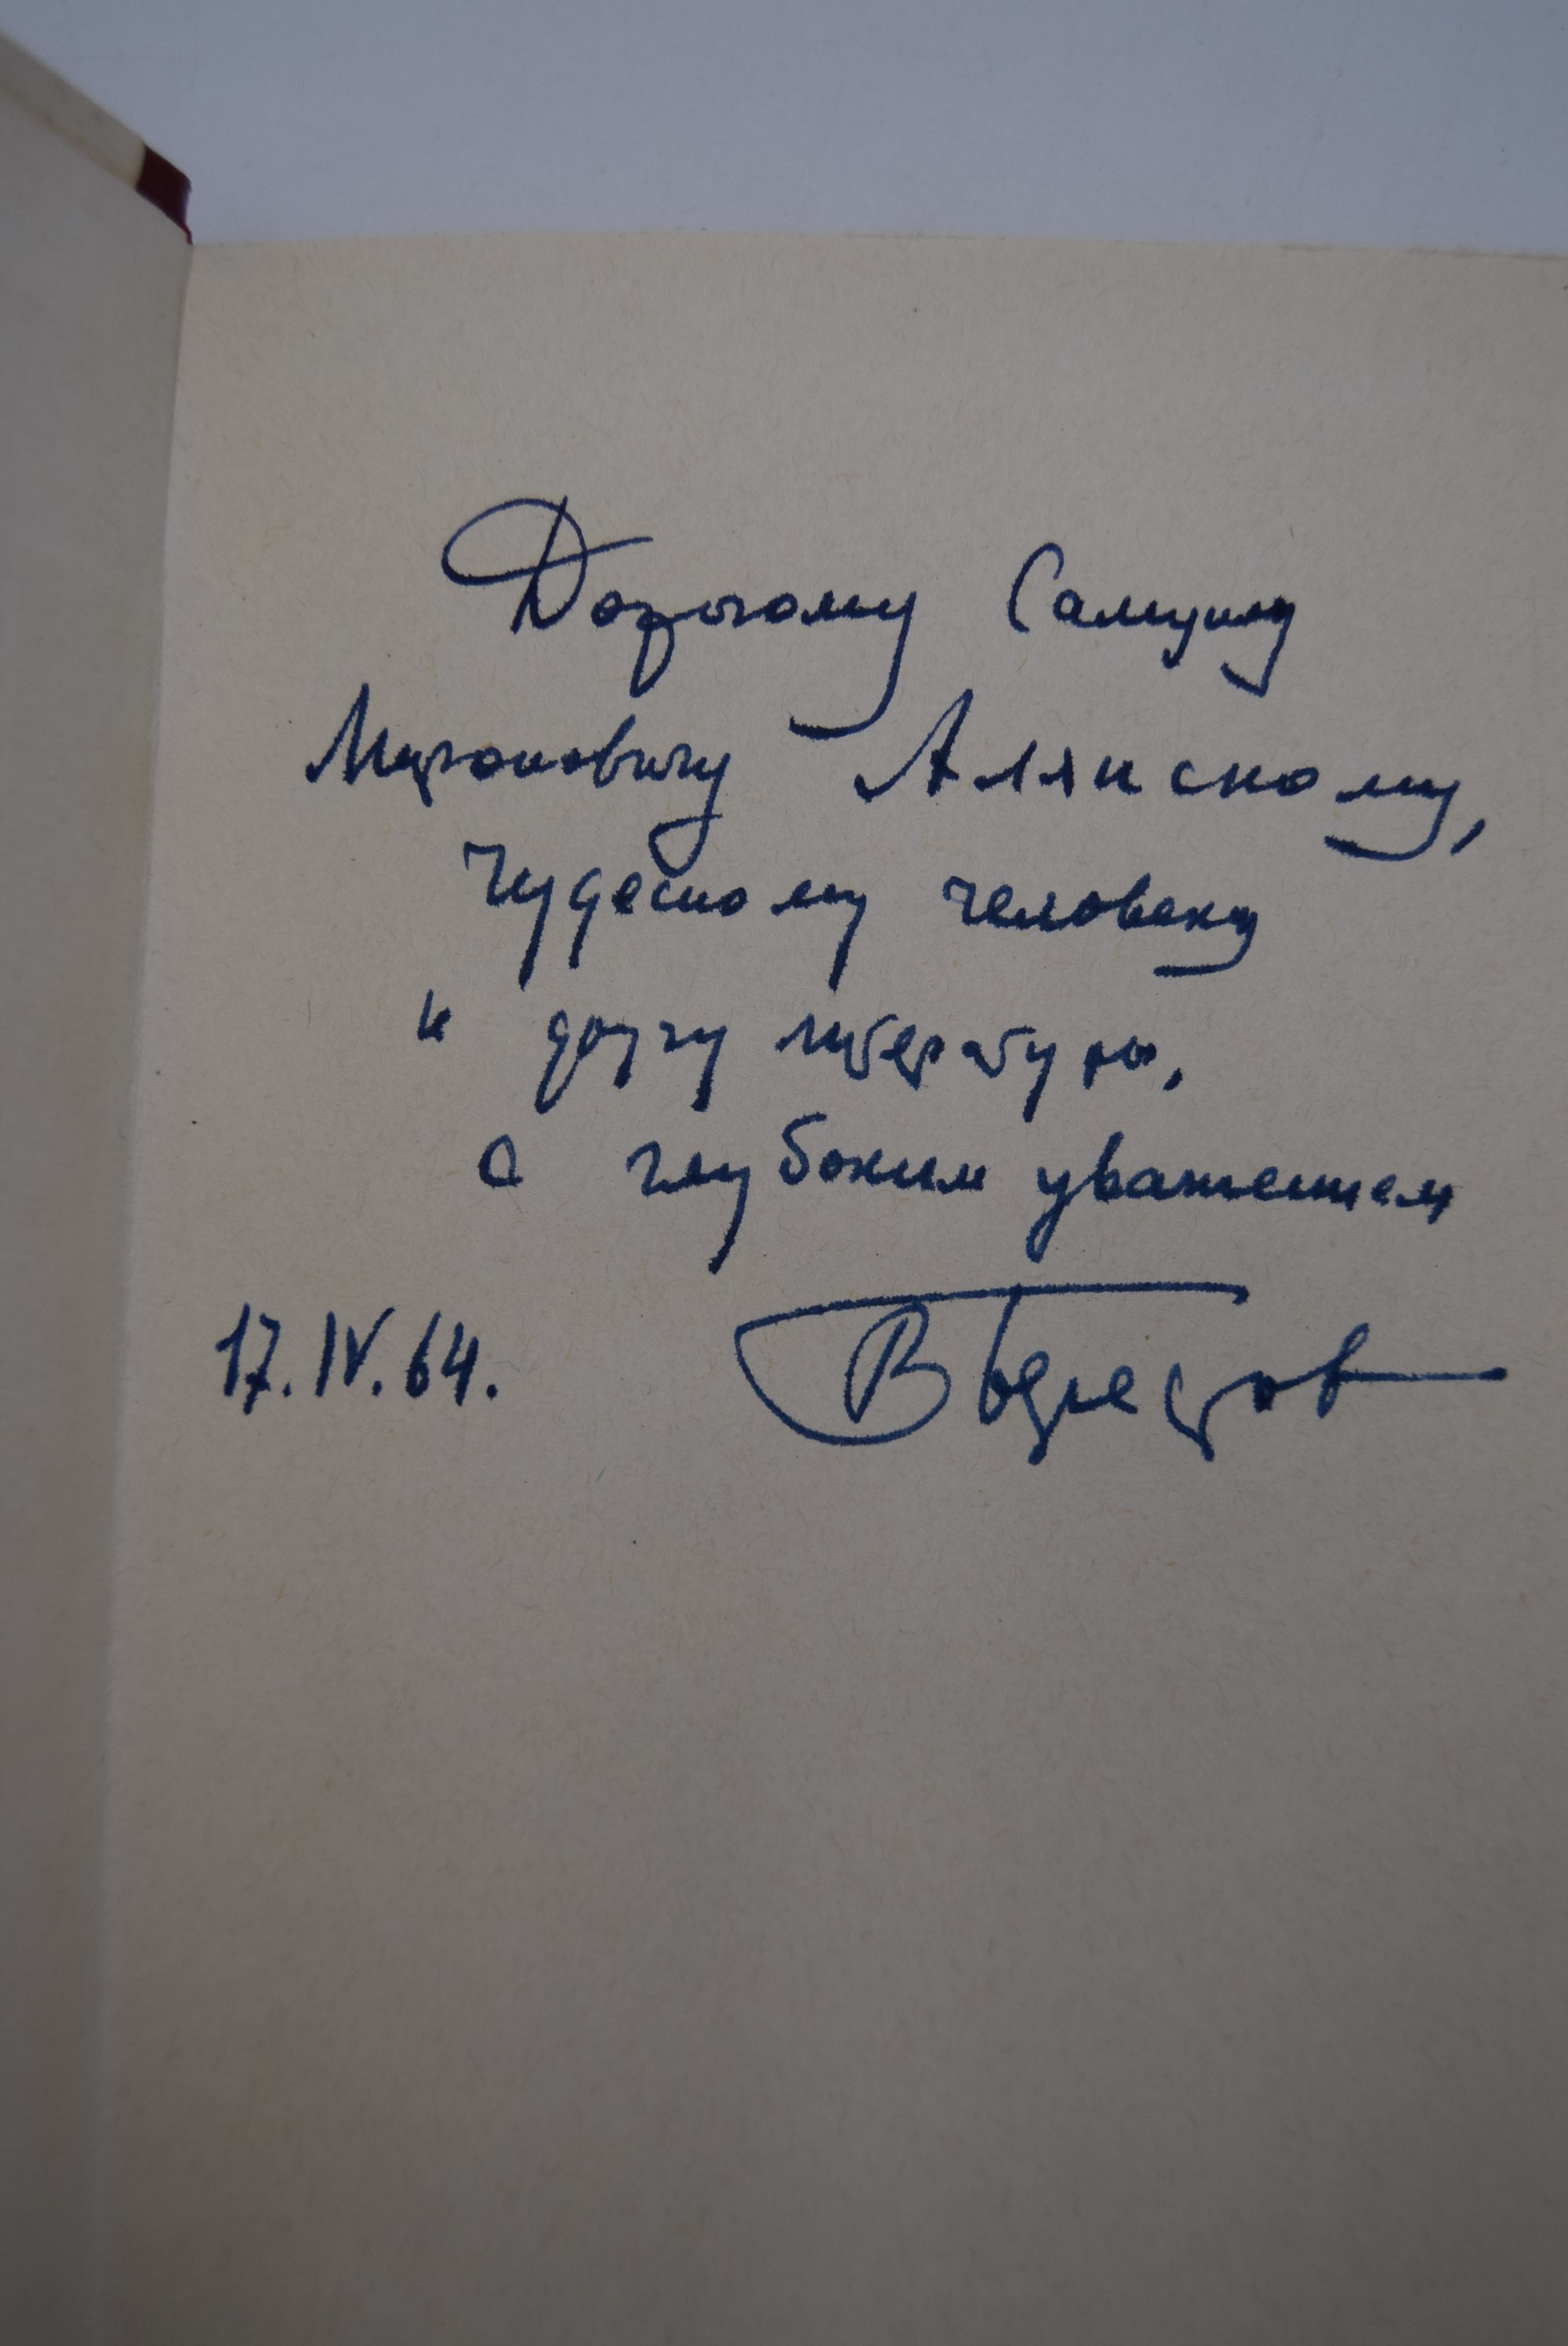 Дорогому Самуилу
Мироновичу Алянскому,
чудесному человеку
и другу литературы,
с глубоким уважением
17.IV.64. В Берестов